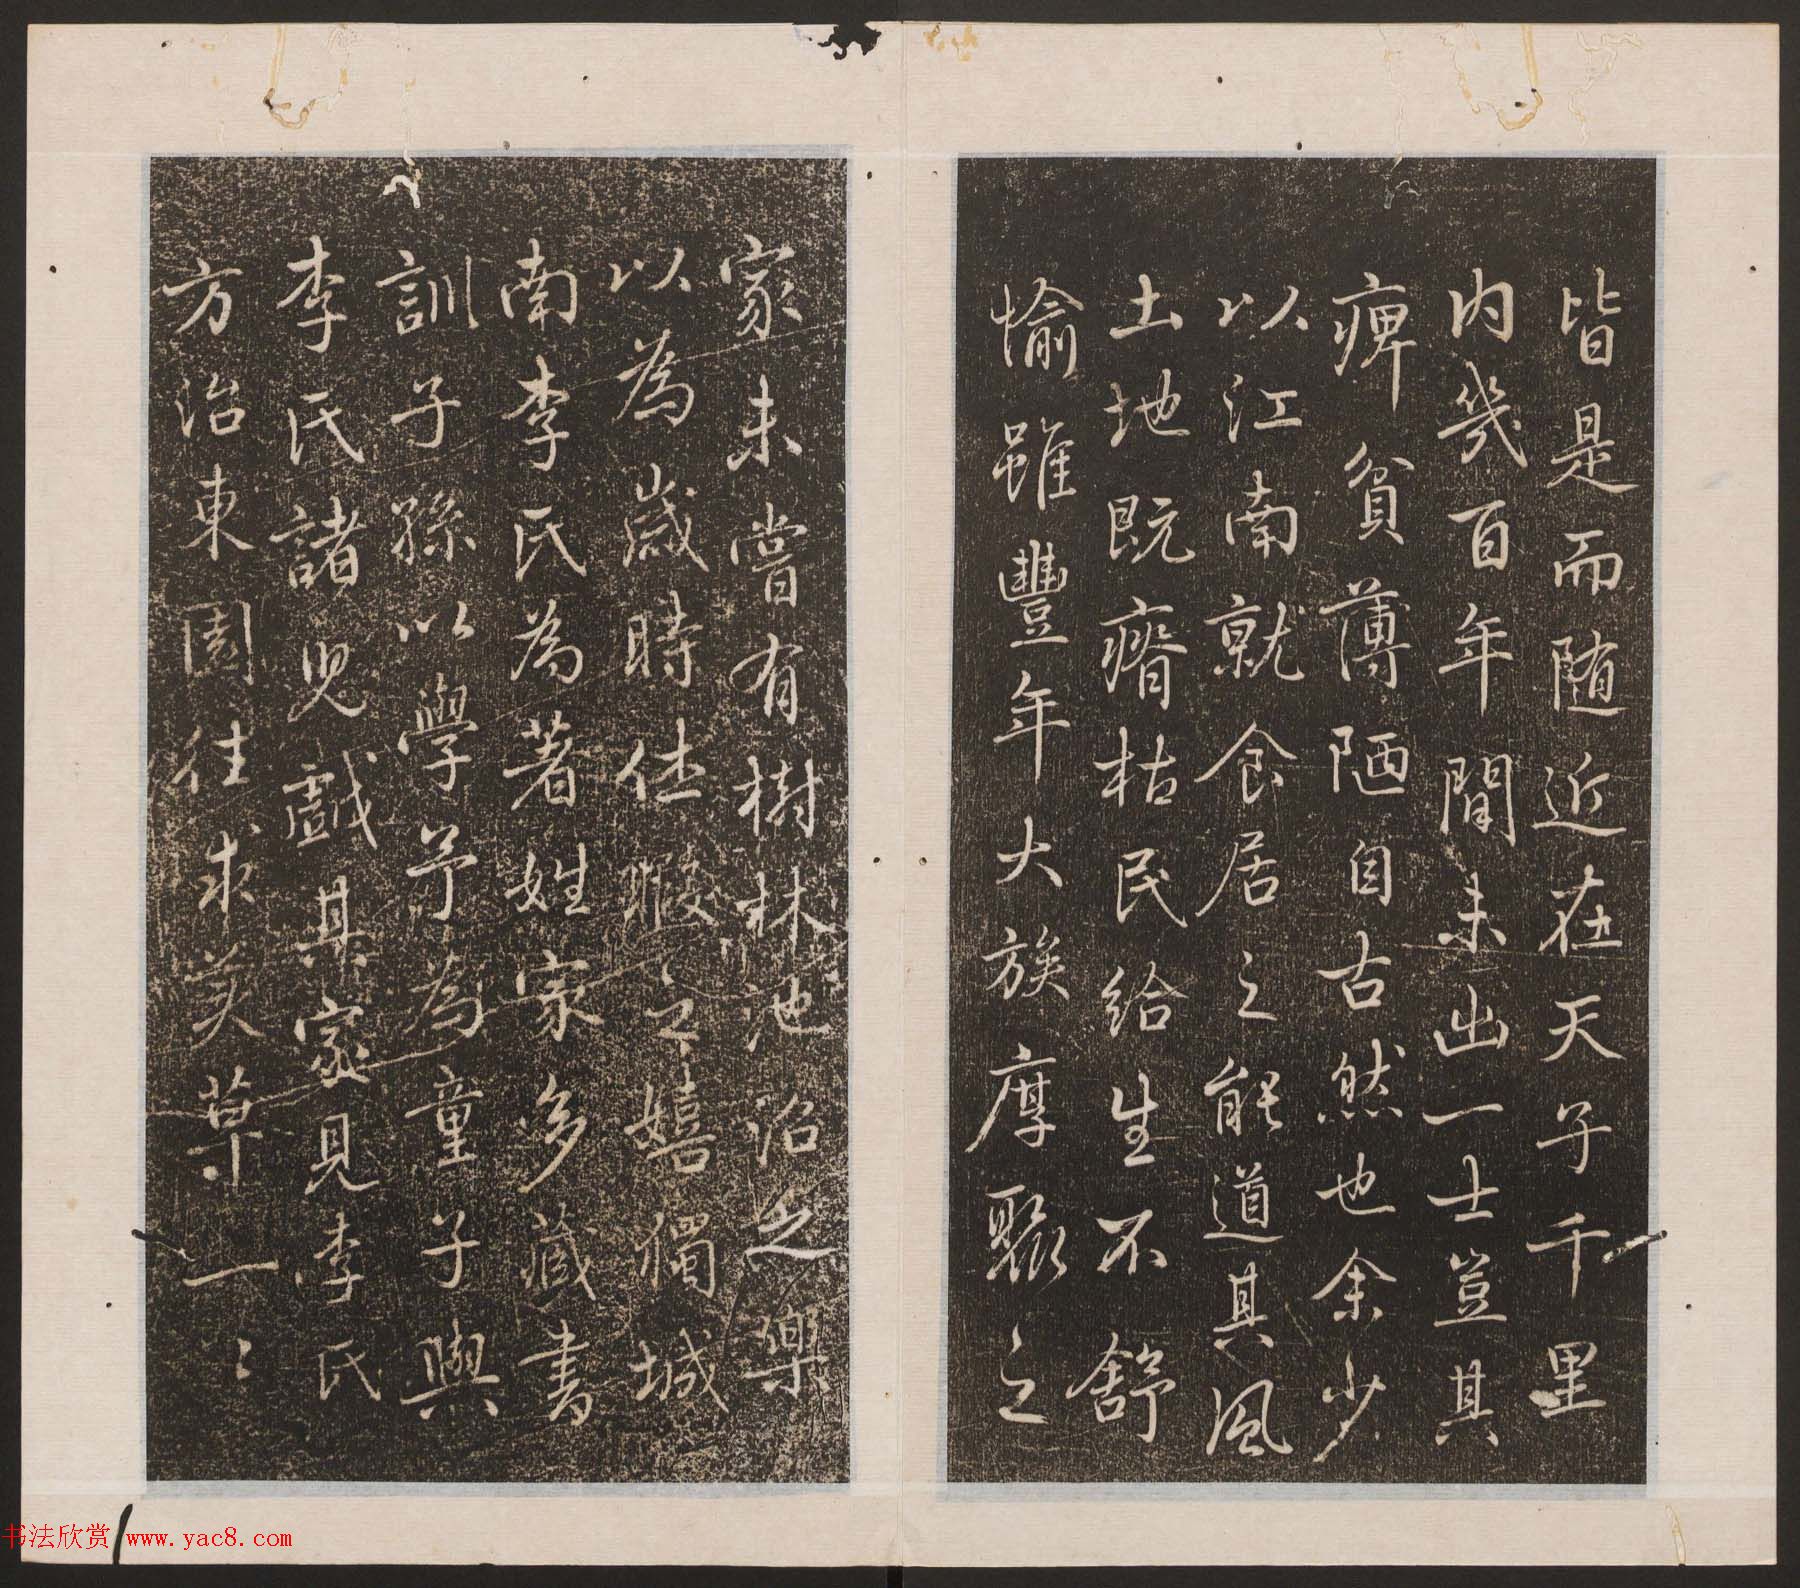 皆是而随近在天子千里
内幾百年間未出一士豈其
痺貧薄陋自古然也余少
以江南就食居之能道其風
土地既瘠枯民給生不舒
愉雖豐年大族厚聚之
家未嘗有樹林池沼之樂
以為歲時休暇之嬉獨城
南李氏為著姓家多藏書
訓子孫以學予為童子與
李氏諸兒戲其家見李氏
方治東園往求美草一一
书法欣赏 www.yac8.com